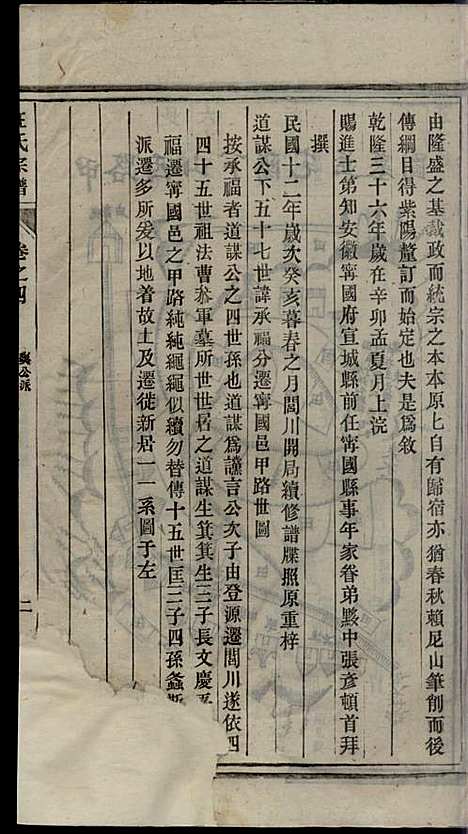 由隆盛之基栽政而統宗之本本原上自有歸宿亦猶春秋賴尼山筆削而後
傳綱目得紫陽釐訂而始定也夫是爲敘
乾隆三十六年歲在辛卯孟夏月上浣
賜進士第知安徽寧國府宣城縣前任寧國縣事年家眷弟黟中張彥頓首拜
撰
民國十二年歲次癸亥暮春之月閭川開局續修譜牒照原重梓
道謀公下五十七世諱承福分遷寧國邑甲路世圖
按承福者道謀公之四世孫也道謀爲讜言公次子由登源遷閭川遂依四
四十五世祖法曹叅軍墓所世世居之道謀生箕箕生三子長文慶
福遷寧國邑之甲路純純繩繩似續勿替傳十五世匡三子四孫螽
派遷多所爰以地着故土及遷徙新居一一系圖于左
氏宗譜
卷之四
公派
二